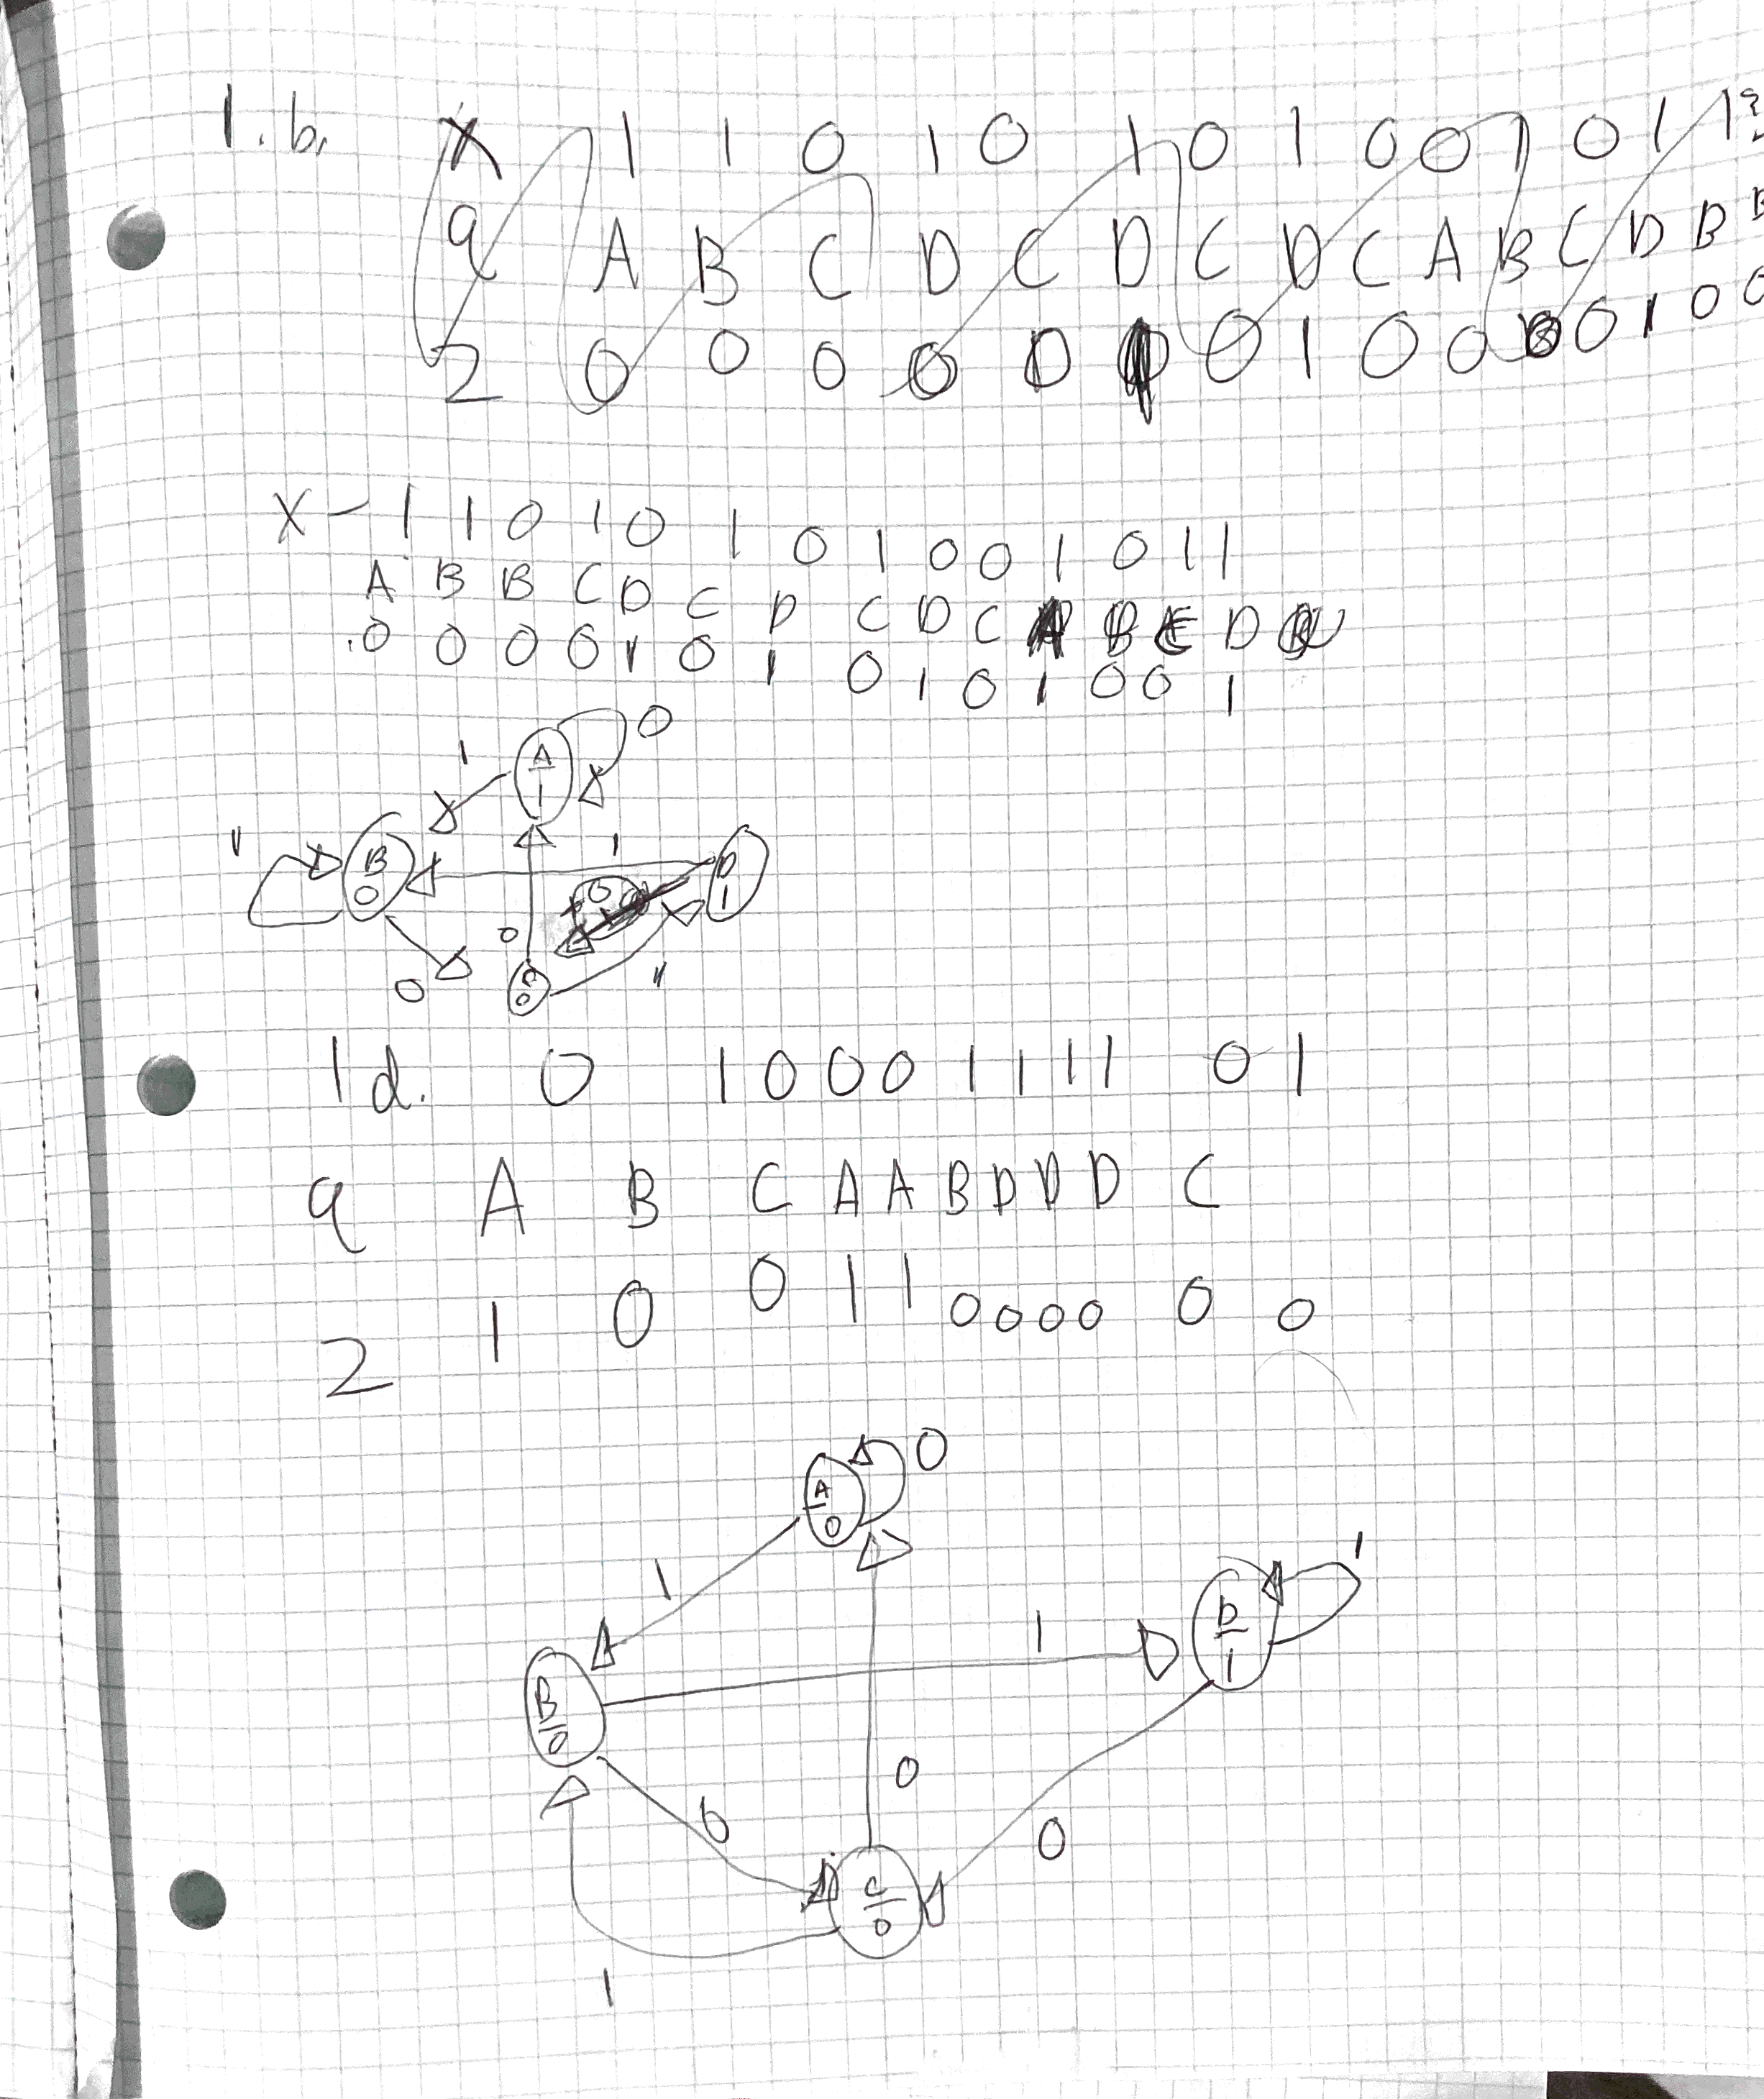 1. b. X 1 1 0 1 0 1 0 1 0 0 1 0 1 1 ?
q A B C D C D C D C A B C D B
2 0 0 0 0 0 0 1 0 0 0 1 0 0
X - 1 1 0 1 0 1 0 1 0 0 1 0 1 1
A B B C D C D C D C B D
0 0 0 0 1 0 1 0 1 0 1 0 0 1
A 1
0
1
B 0
1
1
D 1
0
0
0
1
1d. 0 1 0 0 0 1 1 1 1 0 1
q A B C A A B D D D C
2 1 0 0 1 1 0 0 0 0 0 0
A 0
0
1
B 0
1
D 1
1
0
0
0
C 0
1